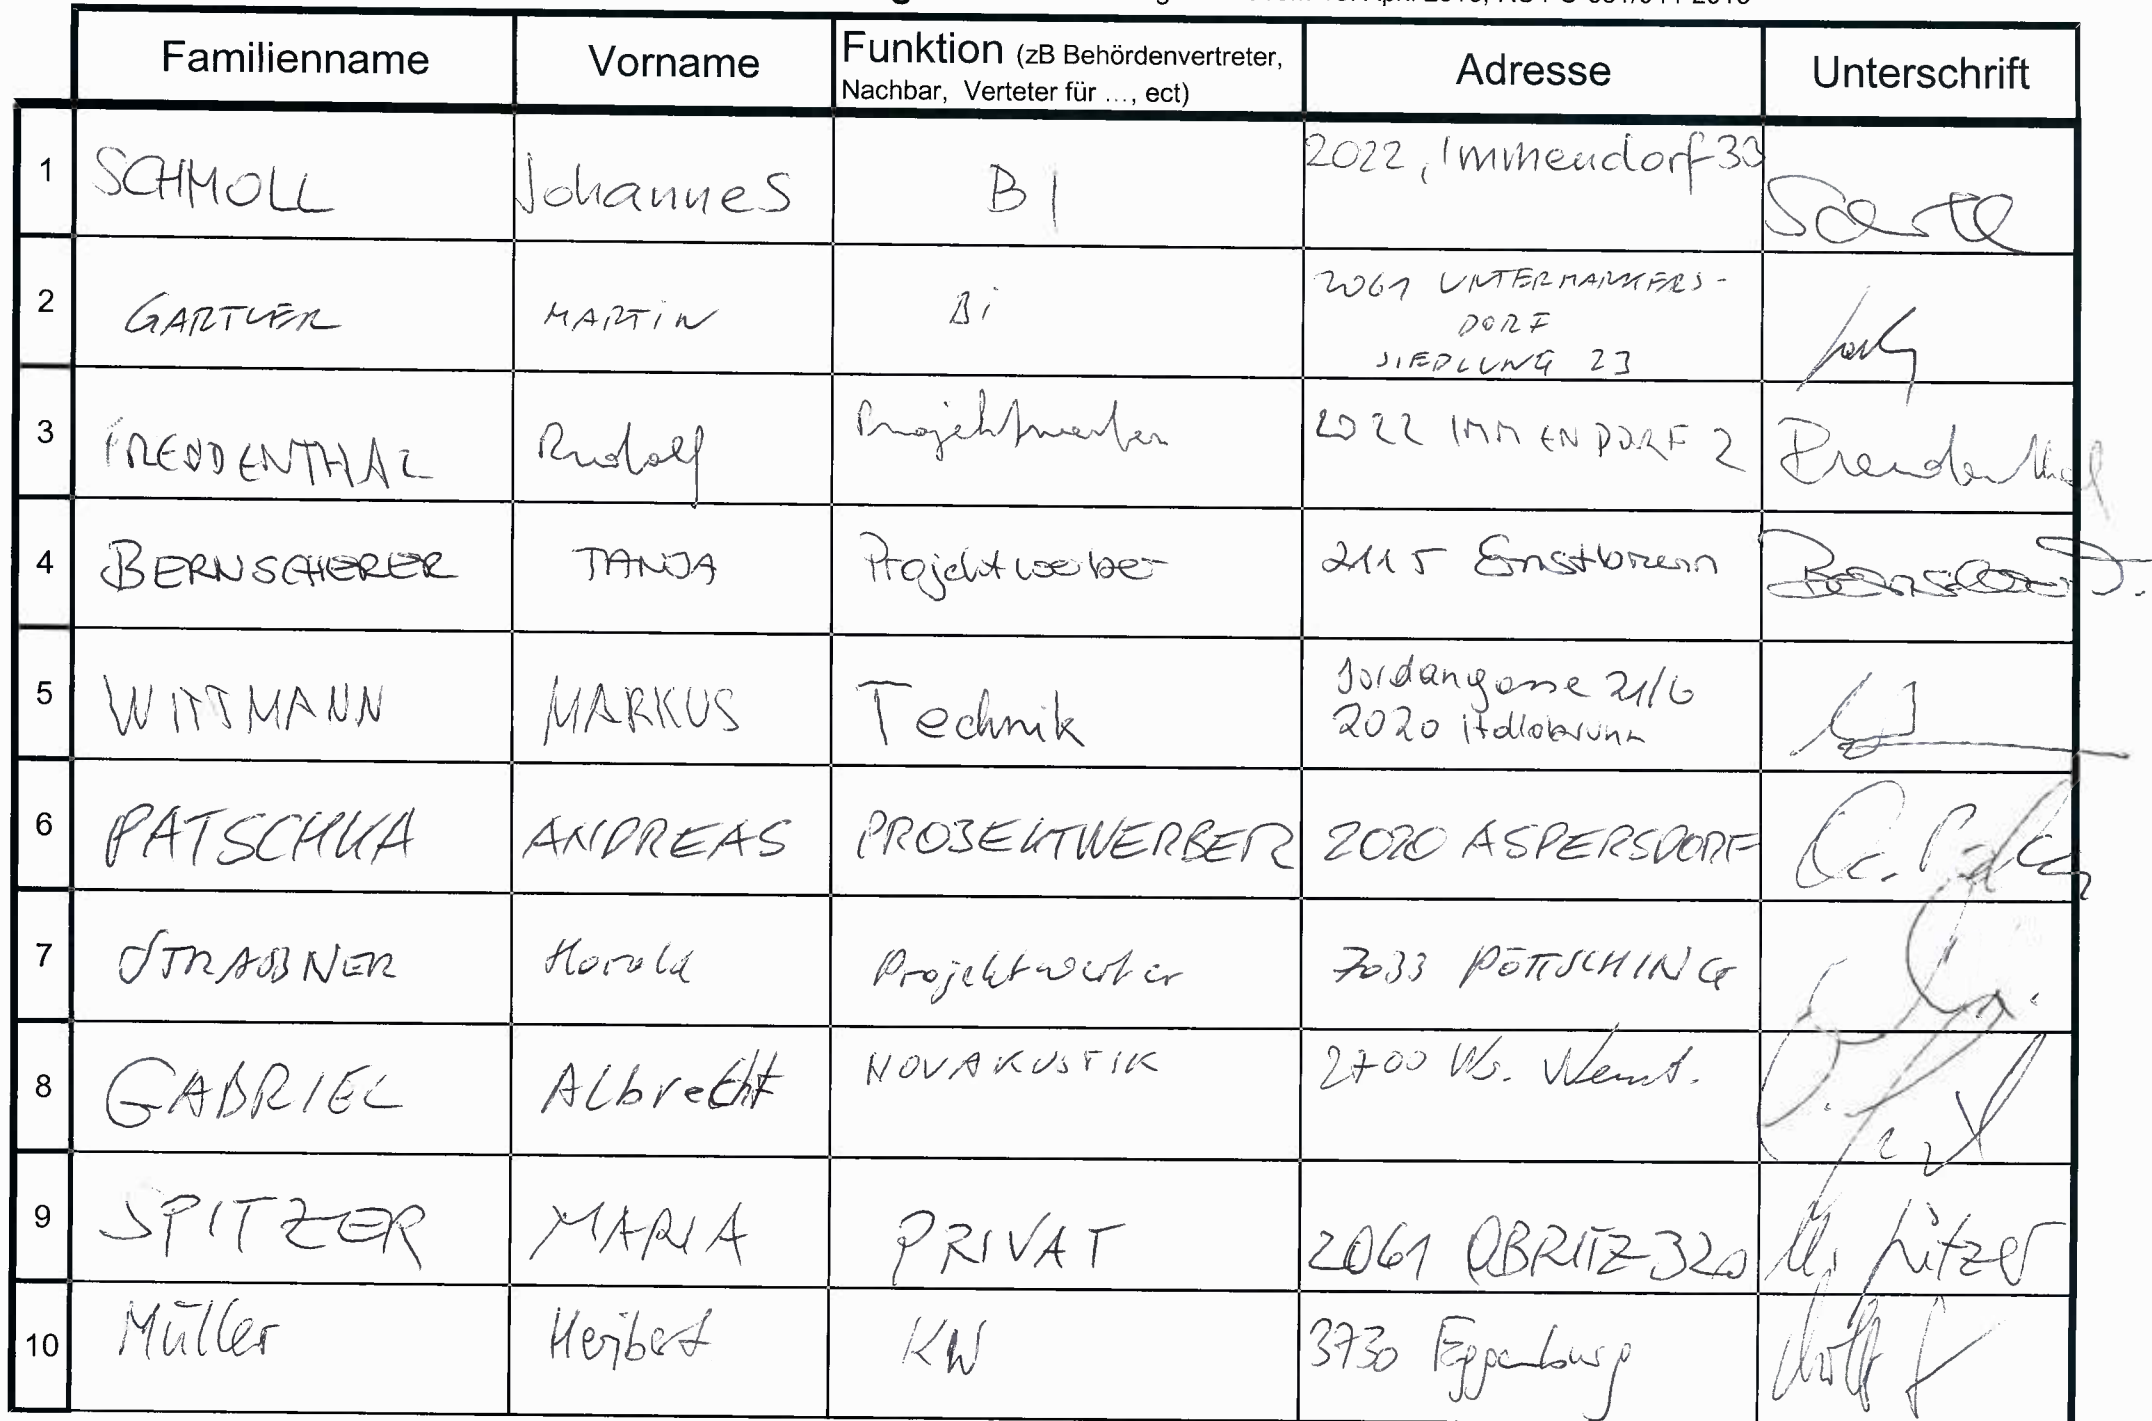 Familienname Vorname Funktion (zB Behördenvertreter, Nachbar, Verteter für ..., ect) Adresse Unterschrift
1 SCHMOLL Johannes BI 2022, Immendorf 33
2 GARTLER MARTIN Bi 2061 UNTERMARKERS-
DORF
SIEDLUNG 23
3 FREUDENTHAL Rudolf Projektwerber 2022 IMMENDORF 2 Freudenthal
4 BERNSCHERER TANJA Projektwerber 2115 Ernstbrunn
5 WITTMANN MARKUS Technik Jordangasse 21/6
2020 Hollabrunn
6 PATSCHKA ANDREAS PROJEKTWERBER 2020 ASPERSDORF
7 STRAUBNER Harald Projektwerber 7033 PÖTTSCHING
8 GABRIEL Albrecht NOVAKUSTIK 2700 Wr. Neust.
9 SPITZER MARIA PRIVAT 2061 OBRITZ 320 M. Spitzer
10 Müller Herbert KW 3730 Eggenburg